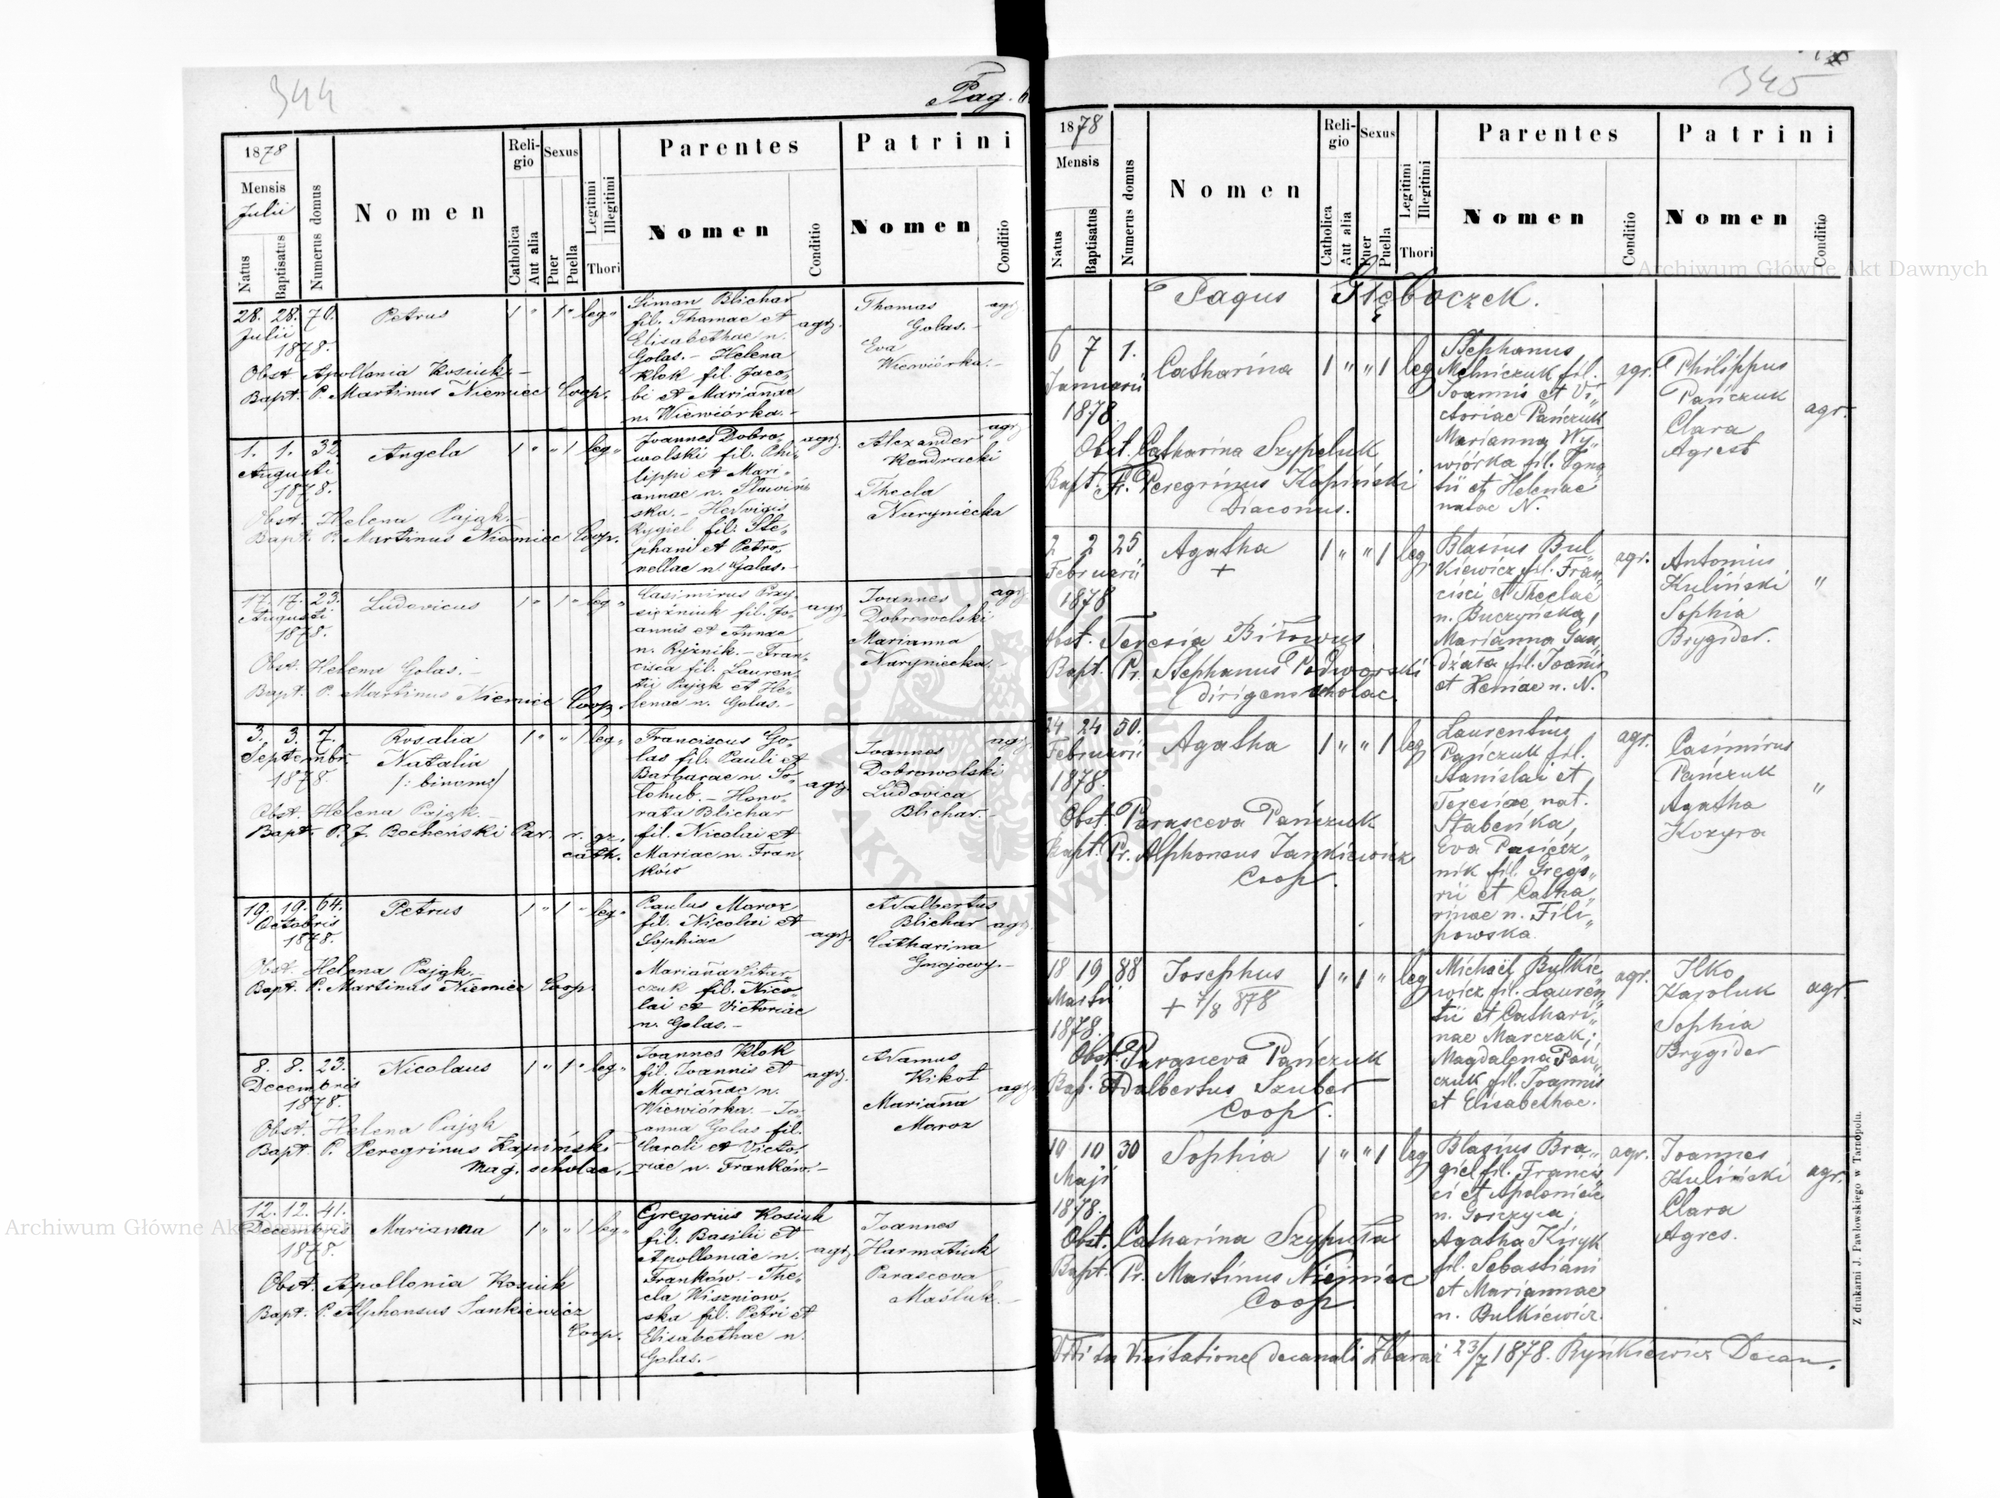 344
Pag.
1878
Mensis
Julii
Natus
Baptisatus
Numerus domus
Nomen
Religio
Catholica
Aut alia
Sexus
Puer
Puella
Legitimi
Illegitimi
Thori
Parentes
Nomen
Conditio
Patrini
Nomen
Conditio
28. 28. 70. Petrus 1 " 1 " leg.
Julii
1878.
Obst. Apollonia Kosiuk.-
Bapt. P. Martinus Niemiec Coop.
Simon Blichar
fil. Thomae et
Elisabethae n.
Golas.- Helena
Klok fil. Jaco-
bi et Mariañae
n. Wiewiórka.-
agr.
Thomas
Golas.-
Eva
Wiewiórka.-
agr.
1. 1. 32. Angela 1 " " 1 leg.
Augusti
1878.
Obst. Helena Pająk.-
Bapt. P. Martinus Niemiec Coop.
Joannes Dobro-
wolski fil. Phi-
lippi et Mari-
annae n. Sławiń-
ska.- Hedwigis
Rygiel fil. Ste-
phani et Petro-
nellae n. Golas.-
agr.
Alexander
Kendracki
Thecla
Naryniecka
agr.
17. 17. 23. Ludovicus 1 " 1 " leg.
Augusti
1878.
Obst. Helena Golas.-
Bapt. P. Martinus Niemiec Coop.
Casimirus Przy-
siężniuk fil. Jo-
annis et Annae
n. Ryżnik.- Fran-
cisca fil. Lauren-
tii Pająk et He-
lenae n. Golas.-
agr.
Joannes
Dobrowolski
Marianna
Naryniecka.-
agr.
3. 3. 7. Rosalia 1 " " 1 leg.
Septembr. Natalia
1878. /: binomi/
Obst. Helena Pająk.-
Bapt. P. J. Bocheński Par. r. gr.
cath.
Franciscus Go-
las fil. Pauli et
Barbarae n. So-
łohub.- Hono-
rata Blichar
fil. Nicolai et
Mariae n. Fran
ków
agr.
Joannes
Dobrowolski
Ludovica
Blichar.-
agr.
19. 19. 64. Petrus 1 " 1 " leg.
Octobris
1878.
Obst. Helena Pająk.-
Bapt. P. Martinus Niemiec Coop.
Paulus Maroz
fil. Nicolai et
Sophiae
Mariaña Sitar-
czuk fil. Nico-
lai et Victoriae
n. Golas.-
agr.
Adalbertus
Blichar
Catharina
agr.
8. 8. 23. Nicolaus 1 " 1 " leg.
Decembris
1878.
Obst. Helena Pająk
Bapt. P. Peregrinus Kapiński-
Mag. scholae.
Joannes Klok
fil. Joannis et
Mariañae n.
Wiewiórka.- Jo-
anna Golas fil.
Caroli et Victo-
riae n. Franków.-
agr.
Adamus
Kikot
Mariaña
Maroz
agr.
12. 12. 41. Marianna 1 " " 1 leg.
Decembris
1878.
Obst. Apollonia Kosiuk
Bapt. P. Alphonsus Jankiewicz
Coop.
Gregorius Kosiuk
fil. Basilii et
Apolloniae n.
Franków.- The-
cla Wiszniow-
ska fil. Petri et
Elisabethae n.
Golas.-
agr.
Joannes
Harmatiuk
Parasceva
Maśluk.-
345
1878
Mensis
Natus
Baptisatus
Numerus domus
Nomen
Religio
Catholica
Aut alia
Sexus
Puer
Puella
Legitimi
Illegitimi
Thori
Parentes
Nomen
Conditio
Patrini
Nomen
Conditio
Pagus Głęboczek.
6 7 1. Catharina 1 " " 1 leg
Januarii
1878.
Obst. Catharina Szypeluk
Bapt. Fr. Peregrinus Kapiński
Diaconus.
Stephanus
Melniczuk fil.
Joannis et Vi-
ctoriae Pańczuk
Marianna Wy-
wiórka fil. Igna
tii et Helenae
natae N.
agr.
Philippus
Pańczuk
Clara
Agrest
agr.
2 2 25 Agatha 1 " " 1 leg
Februarii +
1878
Obst. Teresia Bitowus
Bapt. Pr. Stephanus Podworski
dirigens scholae
Blasius Bul-
kiewicz fil. Fran-
cisci et Theclae
n. Buczyńska,
Marianna Gan-
dzała fil. Joañis
et Xeniae n. N.
agr.
Antonius
Kuliński
Sophia
Brygider.
"
24 24 50. Agatha 1 " " 1 leg
Februarii
1878.
Obst. Parasceva Pańczuk
Bapt. Pr. Alphonsus Jankiewicz
Coop.
Laurentius
Pańczuk fil.
Stanislai et
Teresiae nat.
Stabeńka,
Eva Pasiecz-
nik fil. Grego-
rii et Catha-
rinae n. Fili-
powska
agr.
Casimirus
Pańczuk
Agatha
Kozyra
"
18 19 88 Josephus 1 " 1 " leg
Martii + 7/8 878
1878.
Obst. Parasceva Pańczuk
Bap. Adalbertus Szuber
Coop.
Michaël Bulkie-
wicz fil. Lauren-
tii et Cathari-
nae Marczak;
Magdalena Pań-
czuk fil. Joannis
et Elisabethae.
agr.
Ilko
Karoluk
Sophia
Brygider
agr.
10 10 30 Sophia 1 " " 1 leg
Maji
1878.
Obst. Catharina Szypuła
Bapt. Pr. Martinus Niemiec
Coop.
Blasius Bra-
giel fil. Francis-
ci et Apoloniae
n. Gorzyca;
Agatha Kiryk
fil. Sebastiani
et Mariannae
n. Bulkiewicz.
agr.
Joannes
Kuliński
Clara
Agres.
agr.
Vidi in Visitatione decanali Zbaraż 23/7 1878. Rynkiewicz Decan.
Z drukarni J. Pawłowskiego w Tarnopolu.
Archiwum Główne Akt Dawnych
Archiwum Główne Akt Dawnych
ARCHIWUM GŁÓWNE AKT DAWNYCH